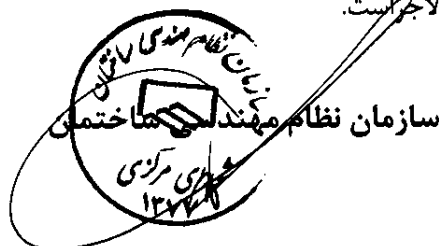 لاجراست.
سازمان نظام مهندسی ساختمان
سازمان نظام مهندسی ساختمان
شورای مرکزی
۱۳۷۷